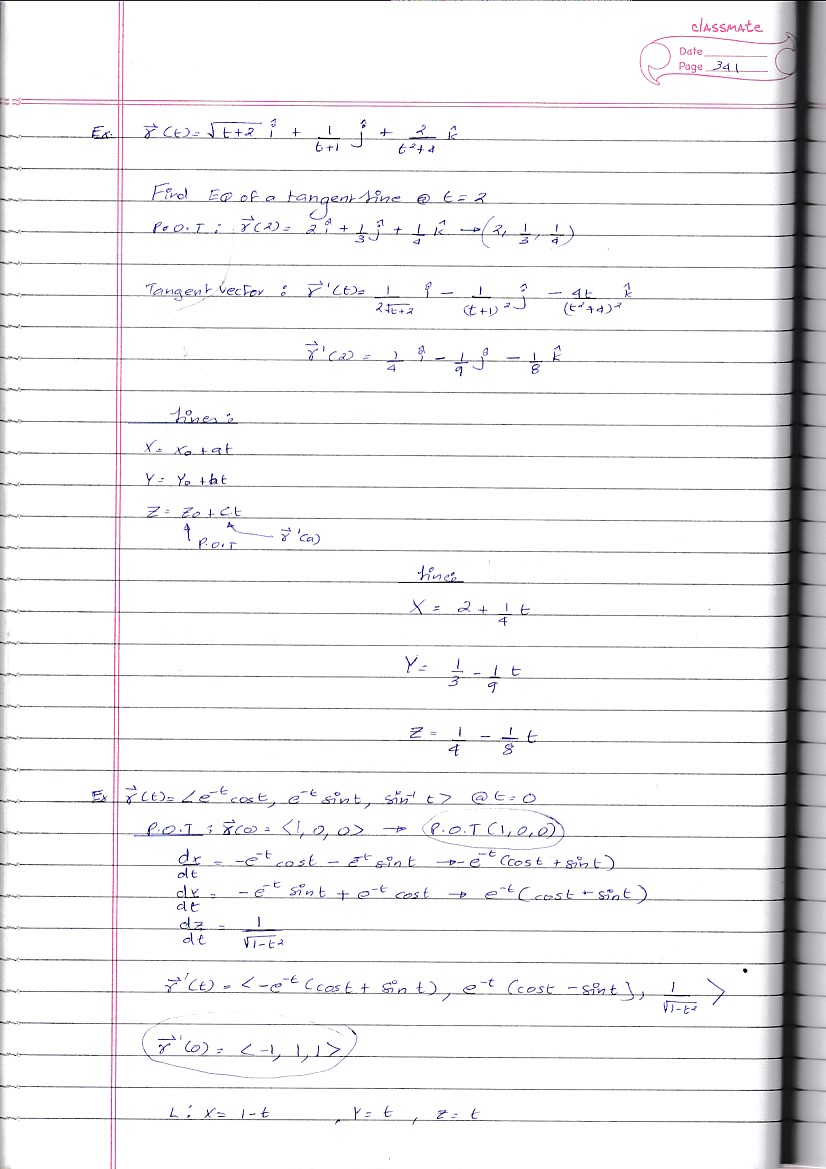 classmate
Date
Page 341
Ex. r⃗(t) = √(t+2) î + 1/(t+1) ĵ + 2/(t²+4) k̂
Find EQ of a tangent line @ t = 2
P.O.T : r⃗(2) = 2î + 1/3 ĵ + 1/4 k̂ → (2, 1/3, 1/4)
Tangent vector : r⃗'(t) = 1/(2√(t+2)) î - 1/(t+1)² ĵ - 4t/(t²+4)² k̂
r⃗'(2) = 1/4 î - 1/9 ĵ - 1/8 k̂
Lines :
X = X₀ + at
Y = Y₀ + bt
Z = Z₀ + C.t
P.O.T r⃗'(a)
Lines
X = 2 + 1/4 t
Y = 1/3 - 1/9 t
Z = 1/4 - 1/8 t
Ex r⃗(t) = <e⁻ᵗ cost, e⁻ᵗ sint, sin⁻¹ t> @ t = 0
P.O.T : r⃗(0) = <1, 0, 0> → P.O.T (1,0,0)
dx/dt = -e⁻ᵗ cost - e⁻ᵗ sint → -e⁻ᵗ (cost + sint)
dy/dt = -e⁻ᵗ sint + e⁻ᵗ cost → e⁻ᵗ (cost - sint)
dz/dt = 1/√(1-t²)
r⃗'(t) = <-e⁻ᵗ (cost + sin t), e⁻ᵗ (cost - sint), 1/√(1-t²)>
r⃗'(0) = <-1, 1, 1>
L : X = 1-t , Y = t , Z = t